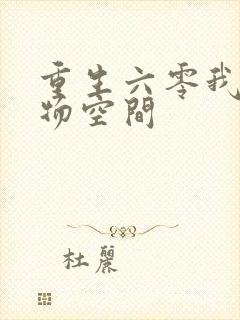 重生六零我
物空間
杜麗